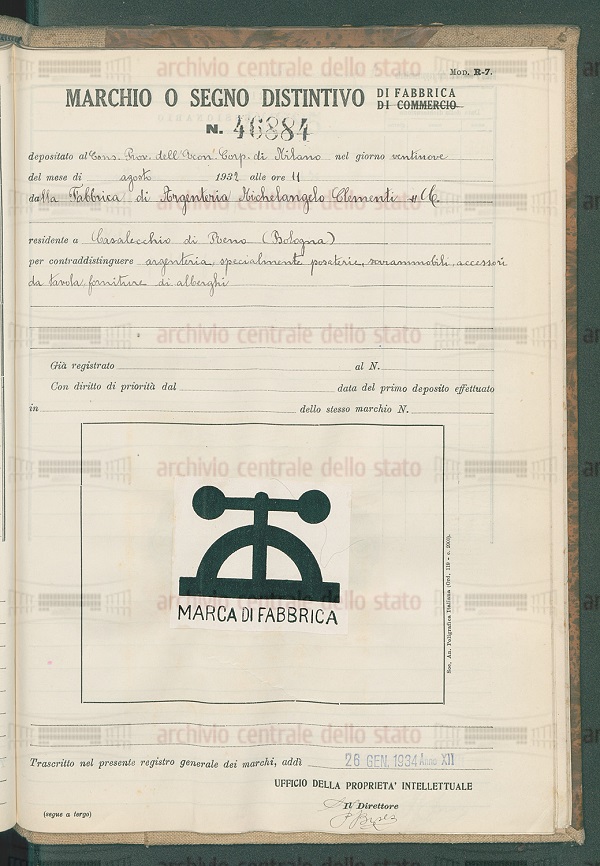 Mod. R-7.
MARCHIO O SEGNO DISTINTIVO DI FABBRICA
DI COMMERCIO
N. 46884
depositato al Cons. Prov. dell'Econ. Corp. di Milano nel giorno ventinove
del mese di agosto 1932 alle ore 11
dalla Fabbrica di Argenteria Michelangelo Clementi & C.
residente a Casalecchio di Reno (Bologna)
per contraddistinguere argenteria, specialmente posaterie, soprammobili, accessori
da tavola, forniture di alberghi
Già registrato al N.
Con diritto di priorità dal data del primo deposito effettuato
in dello stesso marchio N.
MARCA DI FABBRICA
Soc. An. Poligrafica Italiana (Ord. 119 - c. 2000).
Trascritto nel presente registro generale dei marchi, addì 26 GEN. 1934 Anno XII
UFFICIO DELLA PROPRIETA' INTELLETTUALE
Il Direttore
(segue a tergo)
archivio centrale dello stato
archivio centrale dello stato
archivio centrale dello stato
archivio centrale dello stato
archivio centrale dello stato
archivio centrale dello stato
archivio centrale dello stato